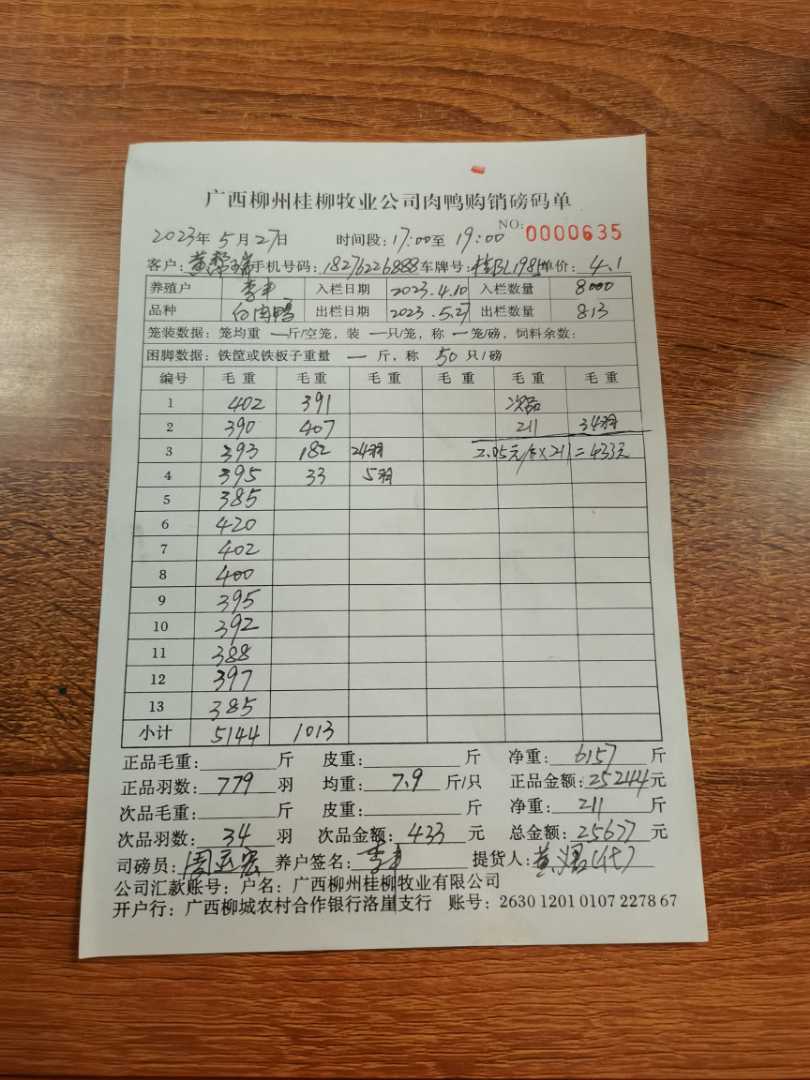 广西柳州桂柳牧业公司肉鸭购销磅码单
NO: 0000635
2023年 5月27日 时间段: 17:00至 19:00
客户: 黄 手机号码: 18276226888 车牌号: 单价: 4.1
养殖户 李 入栏日期 2023.4.10 入栏数量 8000
品种 白肉鸭 出栏日期 2023.5.27 出栏数量 813
笼装数据: 笼均重 一斤/空笼, 装 一只/笼, 称 一笼/磅, 饲料余数:
困脚数据: 铁筐或铁板子重量 一 斤, 称 50 只/磅
编号 毛重 毛重 毛重 毛重 毛重 毛重
1 402 391 次品
2 390 407 211 34羽
3 393 182 24羽 2.05元/斤×211=433元
4 395 33 5羽
5 385
6 420
7 402
8 400
9 395
10 392
11 388
12 397
13 385
小计 5144 1013
正品毛重: 斤 皮重: 斤 净重: 6157 斤
正品羽数: 779 羽 均重: 7.9 斤/只 正品金额: 25244元
次品毛重: 斤 皮重: 斤 净重: 211 斤
次品羽数: 34 羽 次品金额: 433 元 总金额: 25677元
司磅员: 周 宏 养户签名: 李 提货人: 黄 (代)
公司汇款账号: 户名: 广西柳州桂柳牧业有限公司
开户行: 广西柳城农村合作银行洛崖支行 账号: 2630 1201 0107 2278 67